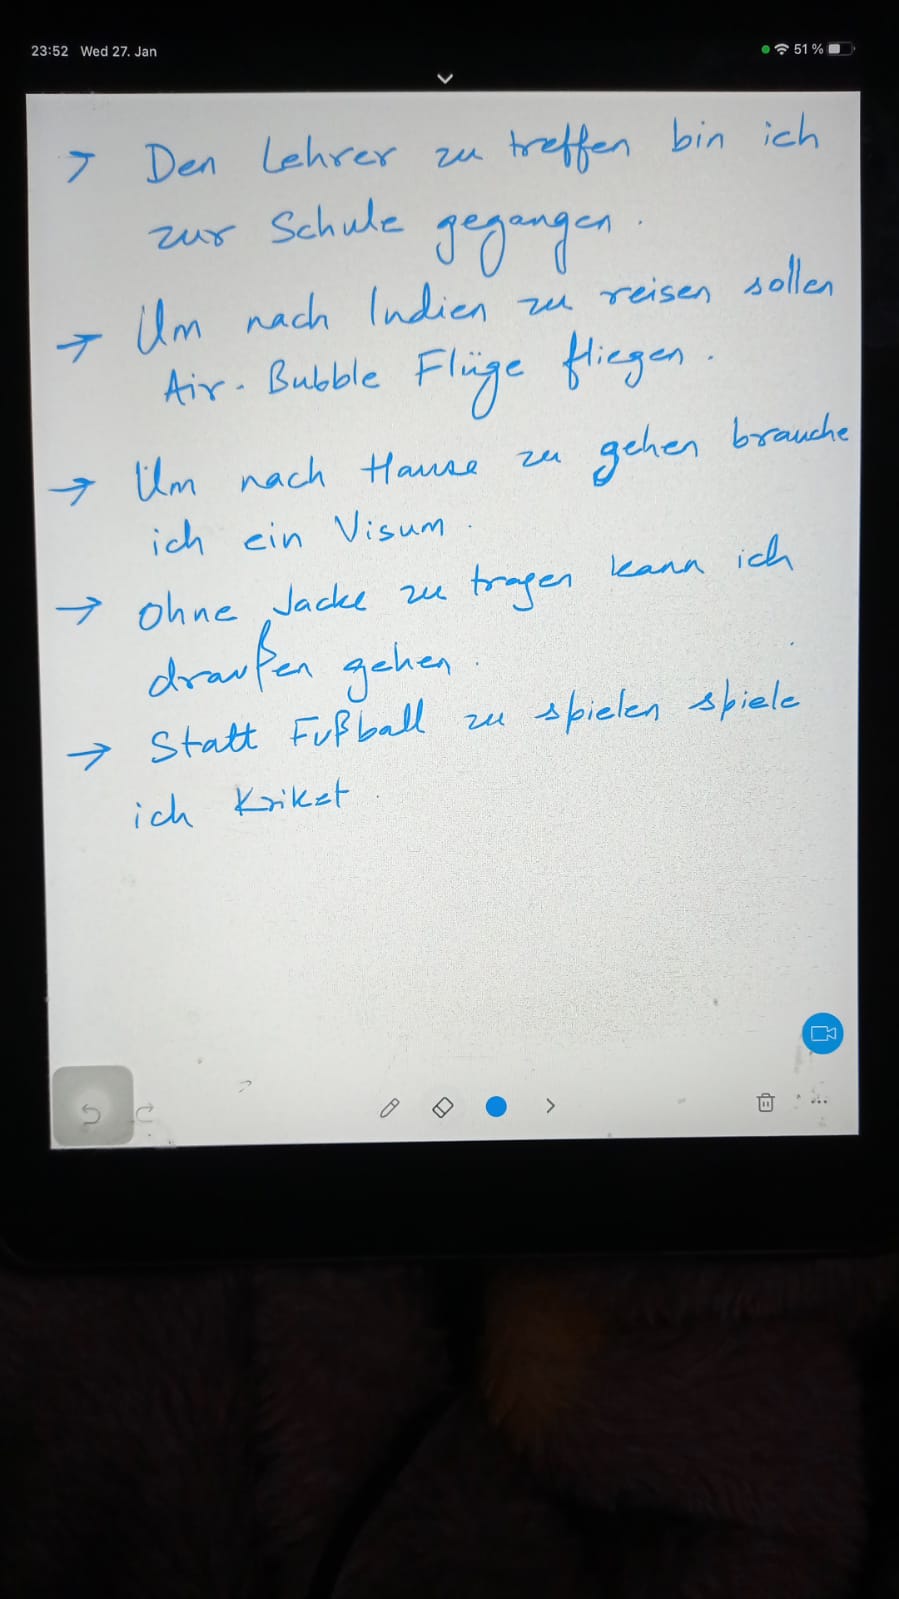 23:52 Wed 27. Jan
51 %
→ Den Lehrer zu treffen bin ich
zur Schule gegangen.
→ Um nach Indien zu reisen sollen
Air-Bubble Flüge fliegen.
→ Um nach Hause zu gehen brauche
ich ein Visum.
→ Ohne Jacke zu tragen kann ich
draußen gehen.
→ Statt Fußball zu spielen spiele
ich Kriket.